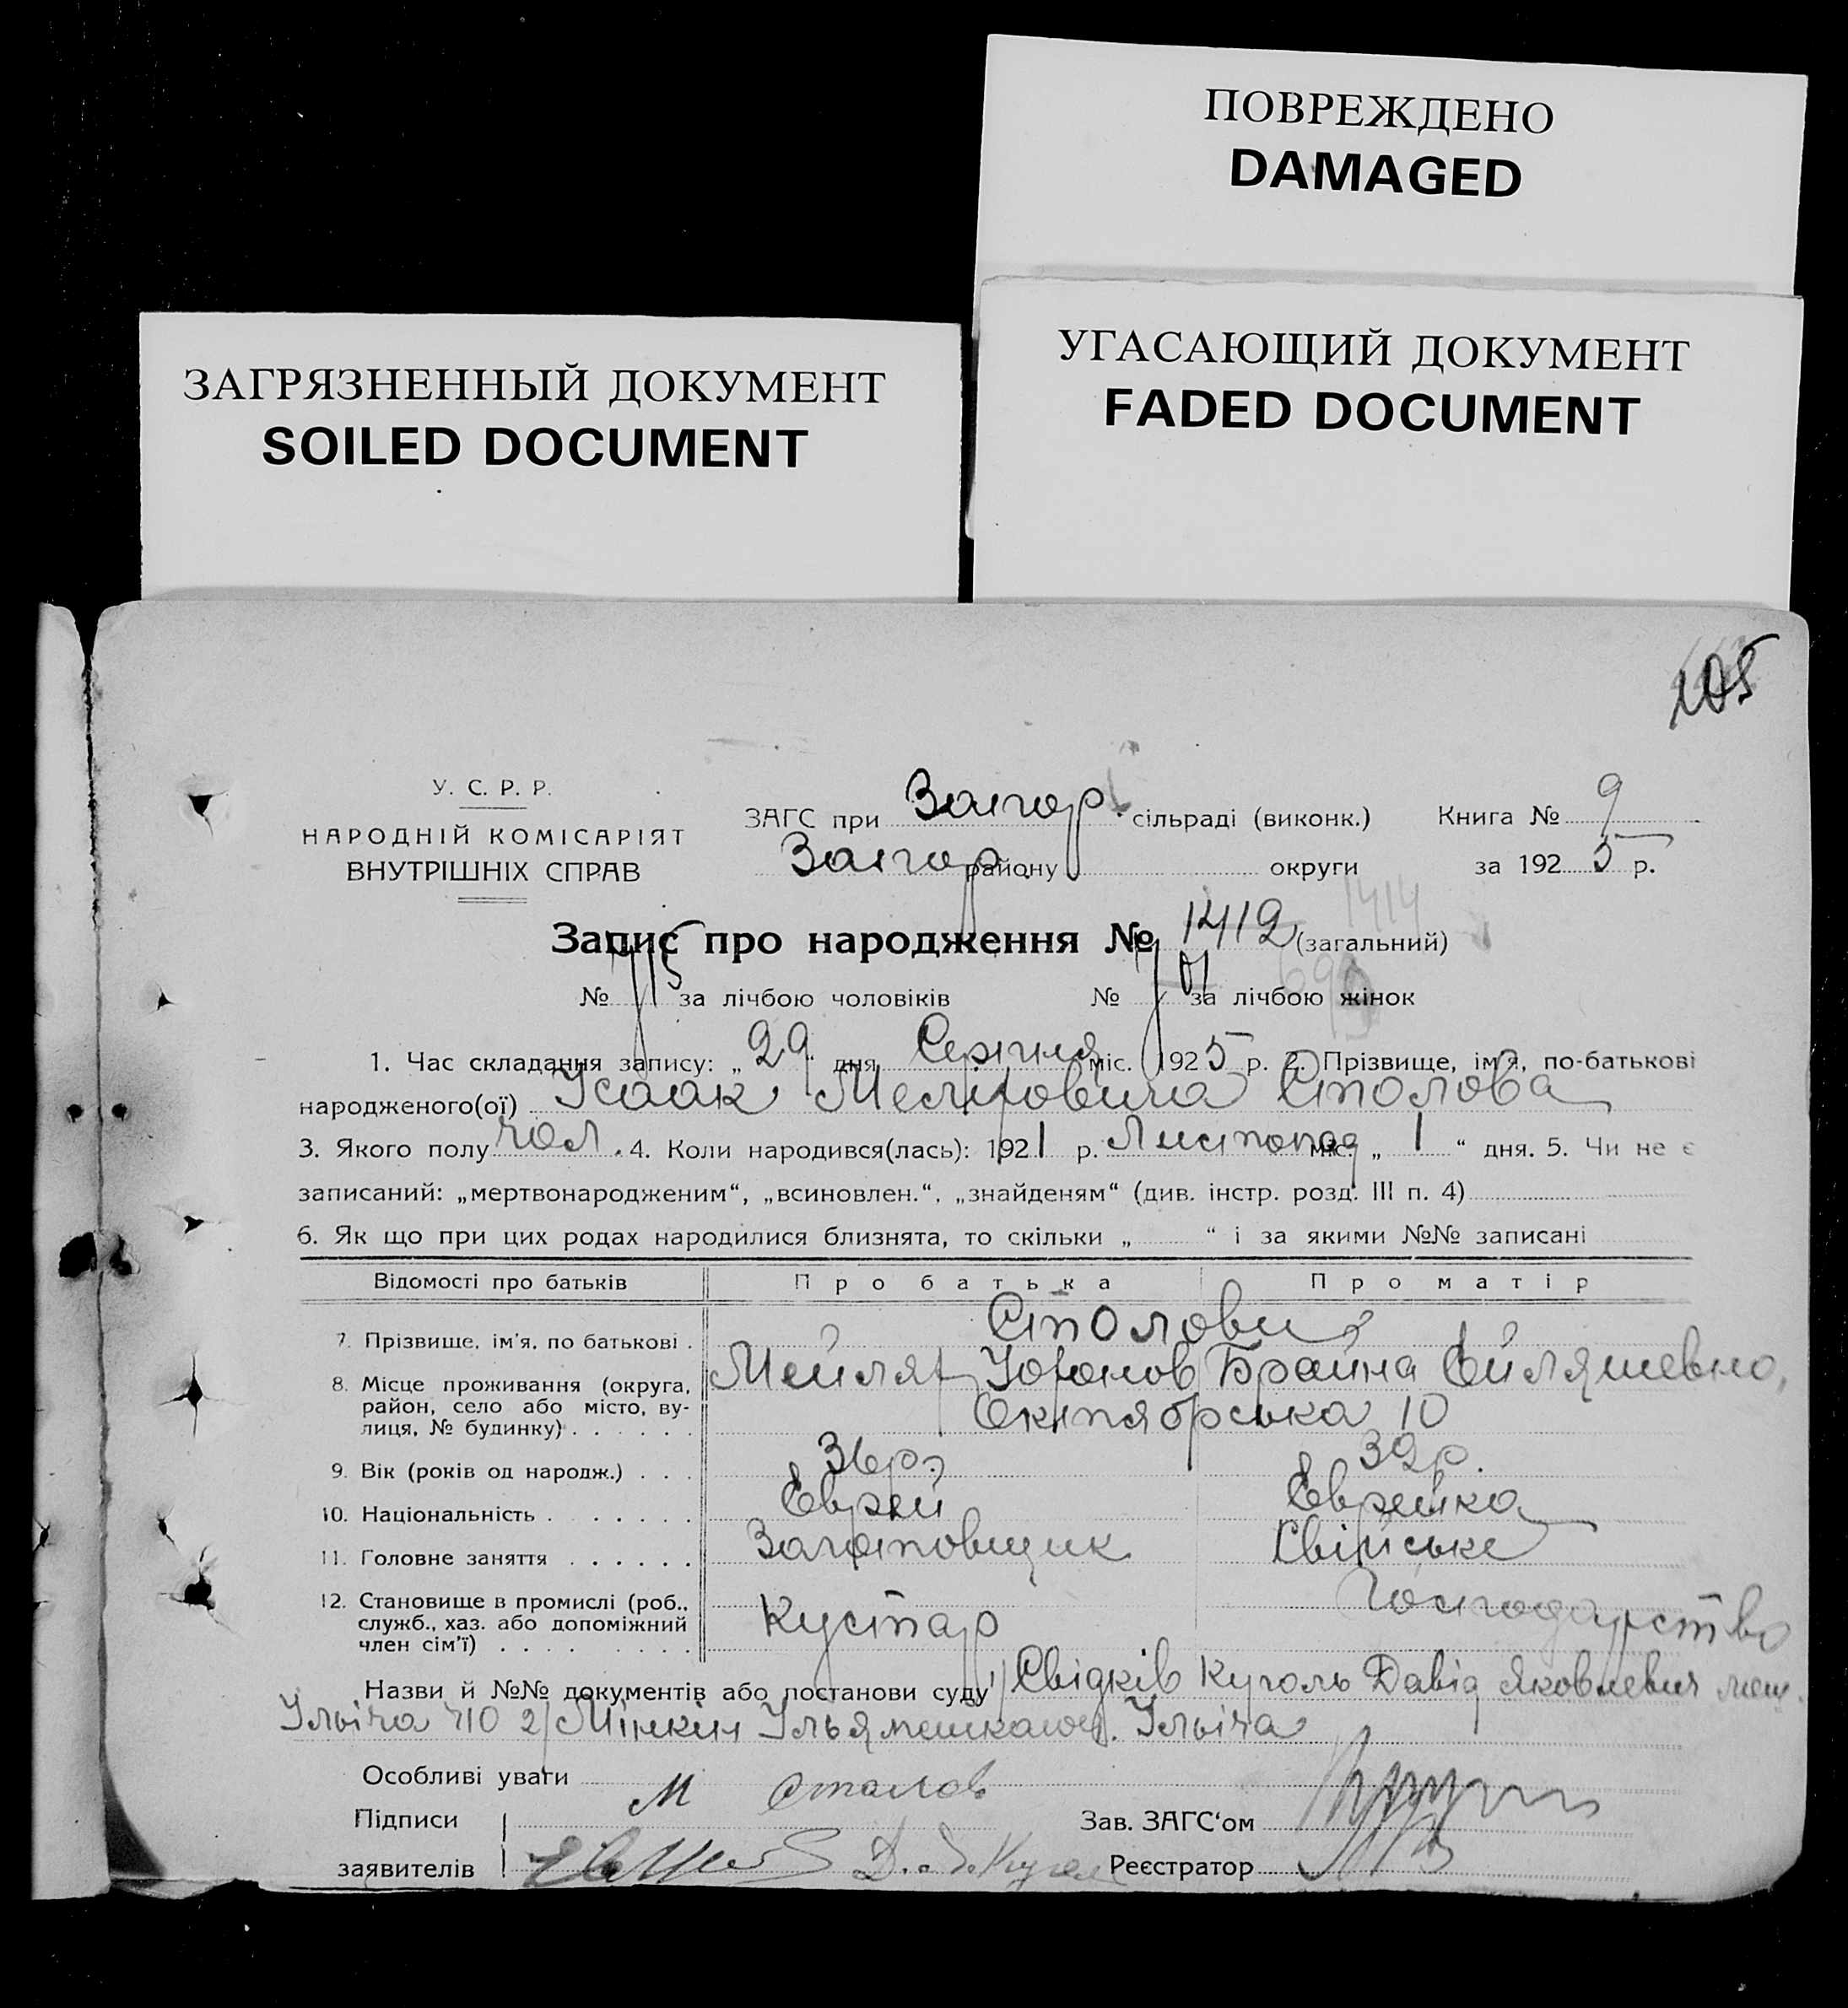 ПОВРЕЖДЕНО
DAMAGED
УГАСАЮЩИЙ ДОКУМЕНТ
FADED DOCUMENT
ЗАГРЯЗНЕННЫЙ ДОКУМЕНТ
SOILED DOCUMENT
105
У. С. Р. Р.
НАРОДНІЙ КОМІСАРІЯТ
ВНУТРІШНІХ СПРАВ
ЗАГС при Запор. сільраді (виконк.) Книга № 9
Запор. району округи за 1925 р.
Запис про народження № 1412 (загальний) 1414
№ 715 за лічбою чоловіків № за лічбою жінок
1. Час складання запису: „29“ дня Серпня міс. 1925 р. 2. Прізвище, ім'я, по-батькові
народженого(ої) Ісаак Столова
3. Якого полу чол. 4. Коли народився(лась): 1921 р. Листопад міс. „1“ дня. 5. Чи не є
записаний: „мертвонародженим“, „всиновлен.“, „знайденям“ (див. інстр. розд. III п. 4)
6. Як що при цих родах народилися близнята, то скільки „ “ і за якими №№ записані
Відомості про батьків Про батька Про матір
7. Прізвище, ім'я, по батькові . Столови
8. Місце проживання (округа, район, село або місто, вулиця, № будинку) . . . . . . Брайна
Октяборська 10
9. Вік (років од народж.) . . . 36 р. 32 р.
10. Національність . . . . . . . Еврей Еврейка
11. Головне заняття . . . . . . Заготовщик Свійське
12. Становище в промислі (роб., служб., хаз. або допоміжний член сім'ї) . . . . . . . . Кустар Господарство
Назви й №№ документів або постанови суду 1/ Свідків Куголь Давід Яковлевич меш.
Ільіча 2/ Мінкин Ілья мешкающ. Ільіча
Особливі уваги
Підписи М Столов Зав. ЗАГС'ом
заявителів Реєстратор